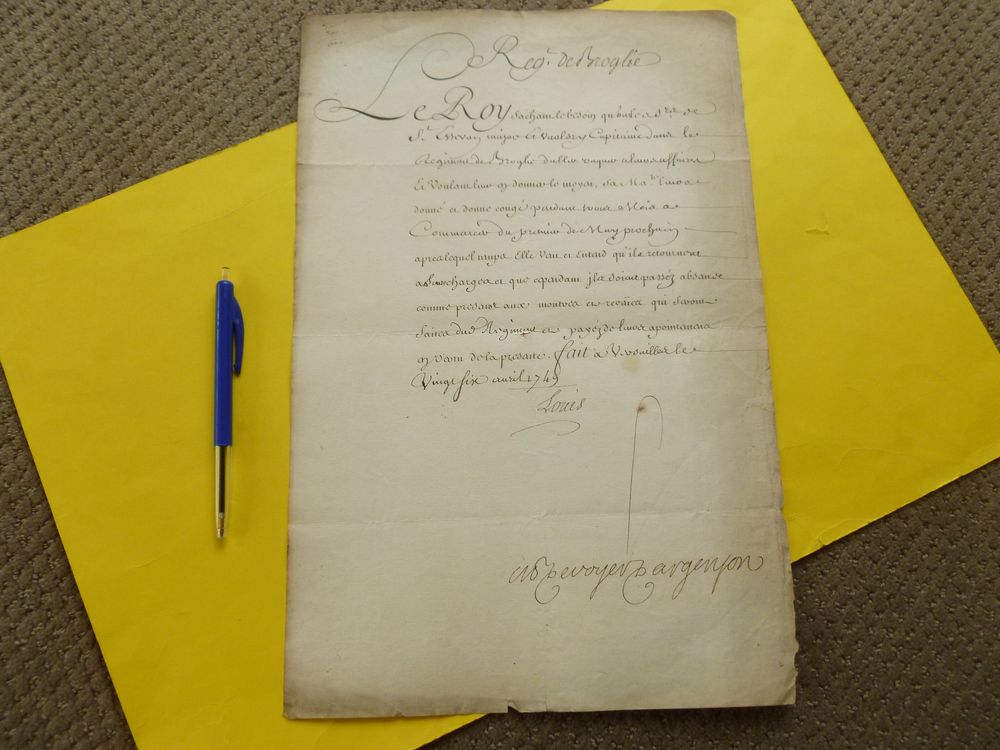 Reg.t de Broglie
Le Roy sachant le besoin qu'ont les S.rs de
S.t major et Capitaine dans le
Regiment de Broglie d'aller vaquer a leurs affaires
Et Voulant leur en donner le moyen, Sa Ma.té leur a
donné et donne congé pendant trois Mois a
Commencer du premier de May prochain
apres lequel temps Elle veut et Entend qu'ils retournent
a leurs charges et que cependant ils soient passéz absens
comme presens aux montres et reveües qui seront
faites dud. Regiment et payéz de leurs apointemens
en vertu de la presente. fait a Versailles le
Vingt six avril 1749
Louis
De voyer D'argenson